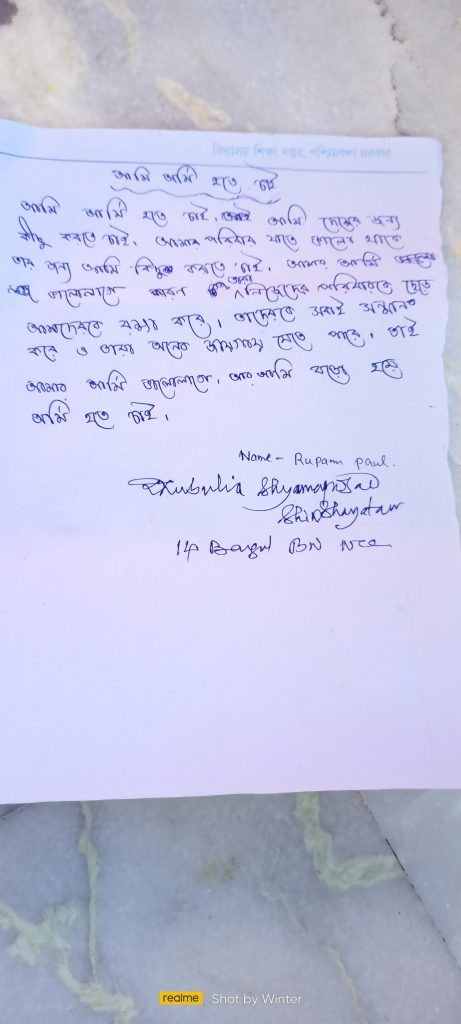 বিদ্যালয় শিক্ষা দপ্তর, পশ্চিমবঙ্গ সরকার
আমি আর্মি হতে চাই
আমি আর্মি হতে চাই। আমি দেশের জন্য
কীছু করতে চাই। আমার পরিবার যাতে ভালো থাকে
তার জন্য আমি কিছু করতে চাই। আমার আর্মি
ভালোলাগে কারন তারা নিজেদের পরিবারকে ছেড়ে
আমাদেরকে রক্ষা করে। তাদেরকে সবাই সন্মান
করে ও তারা অনেক জায়গায় যেতে পারে। তাই
আমার আর্মি ভালোলাগে। আর আমি বড়ো হয়ে
আর্মি হতে চাই।
Name - Rupam paul.
Dhubulia Shyamaprosad
Shikshayatan
14 Bengal BN NCC
realme Shot by Winter